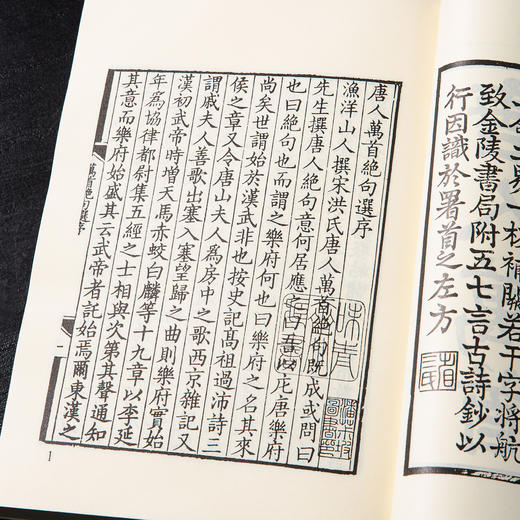 校補闕若干字將航
致金陵書局附五七言古詩鈔以
行因識於署首之左方
唐人萬首絶句選序
漁洋山人撰宋洪氏唐人萬首絶句既成或問曰
先生撰唐人絶句意何居應之曰吾以庀唐樂府
也曰絶句也而謂之樂府何也曰樂府之名其來
尚矣世謂始於漢武非也按史記髙祖過沛詩三
侯之章又令唐山夫人為房中之歌西京雜記又
謂戚夫人善歌出塞入塞望歸之曲則樂府實始
漢初武帝時增天馬赤蛟白麟等十九章以李延
年為協律都尉集五經之士相與次第其聲通知
其意而樂府始盛其云武帝者託始焉爾東漢之
萬首絶句選序
一
1